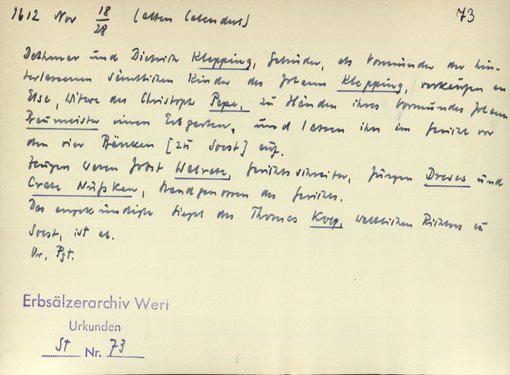 1612 Nov 18/28 (alten Calenders) 73
Dethmar und Dietrich Klepping, Gebrüder, als Vormünder der hin-
terlassenen sämtlichen Kinder des Johann Klepping, verkaufen an
Else, Witwe des Christoph Pape, zu Händen ihres Vormundes Johann
Braumeister einen Erbgarten, und lassen ihn im Gericht vor
den vier Bänken [zu Soest] auf.
Zeugen waren Jobst Walrave, Gerichtsschreiter, Jürgen Drewes und
Crate Nüßken, Standgenossen des Gerichts.
Das angekündigte Siegel des Thomas Koep, weltlichen Richters zu
Soest, ist ab.
Or. Pgt.
Erbsälzerarchiv Werl
Urkunden
St Nr. 73